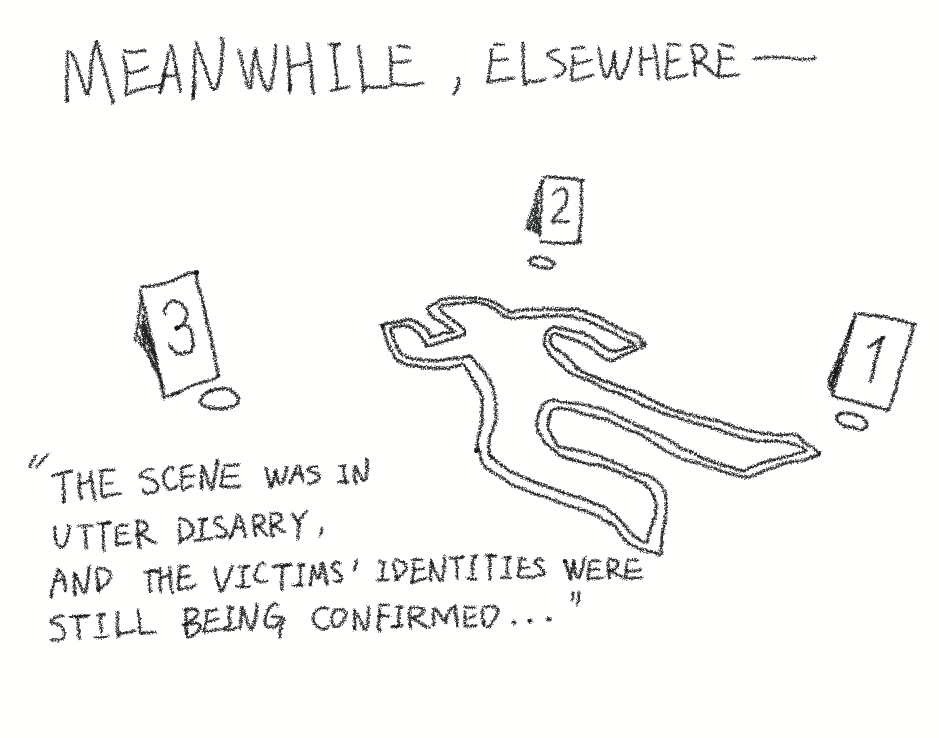 MEANWHILE, ELSEWHERE—
2
3
1
"THE SCENE WAS IN
UTTER DISARRY,
AND THE VICTIMS' IDENTITIES WERE
STILL BEING CONFIRMED..."